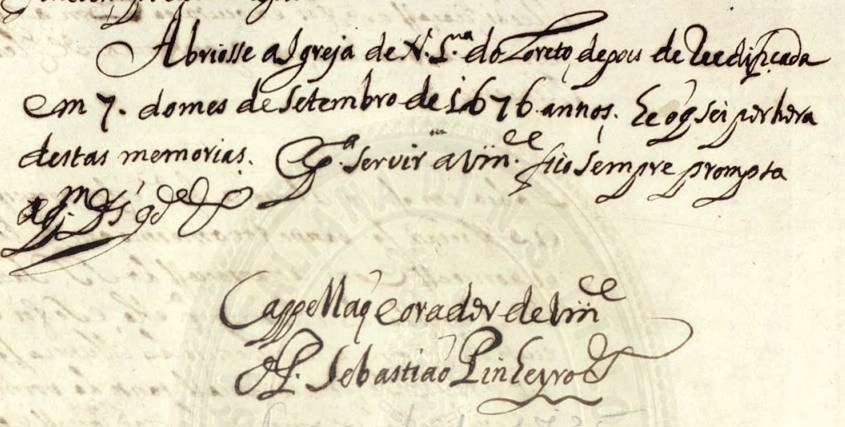 Abriosse a Igreja de N. Sra. do Loreto, depois de Reedificada
em 7. do mes de Setembro de 1676 annos. he o q sei por hora
destas memorias. E pa. servir a Vmce. fico sempre prompta
a q.m Ds' gde
Cappellaõ, e orador de Vmce
O P. Sebastiaõ Pinheyro